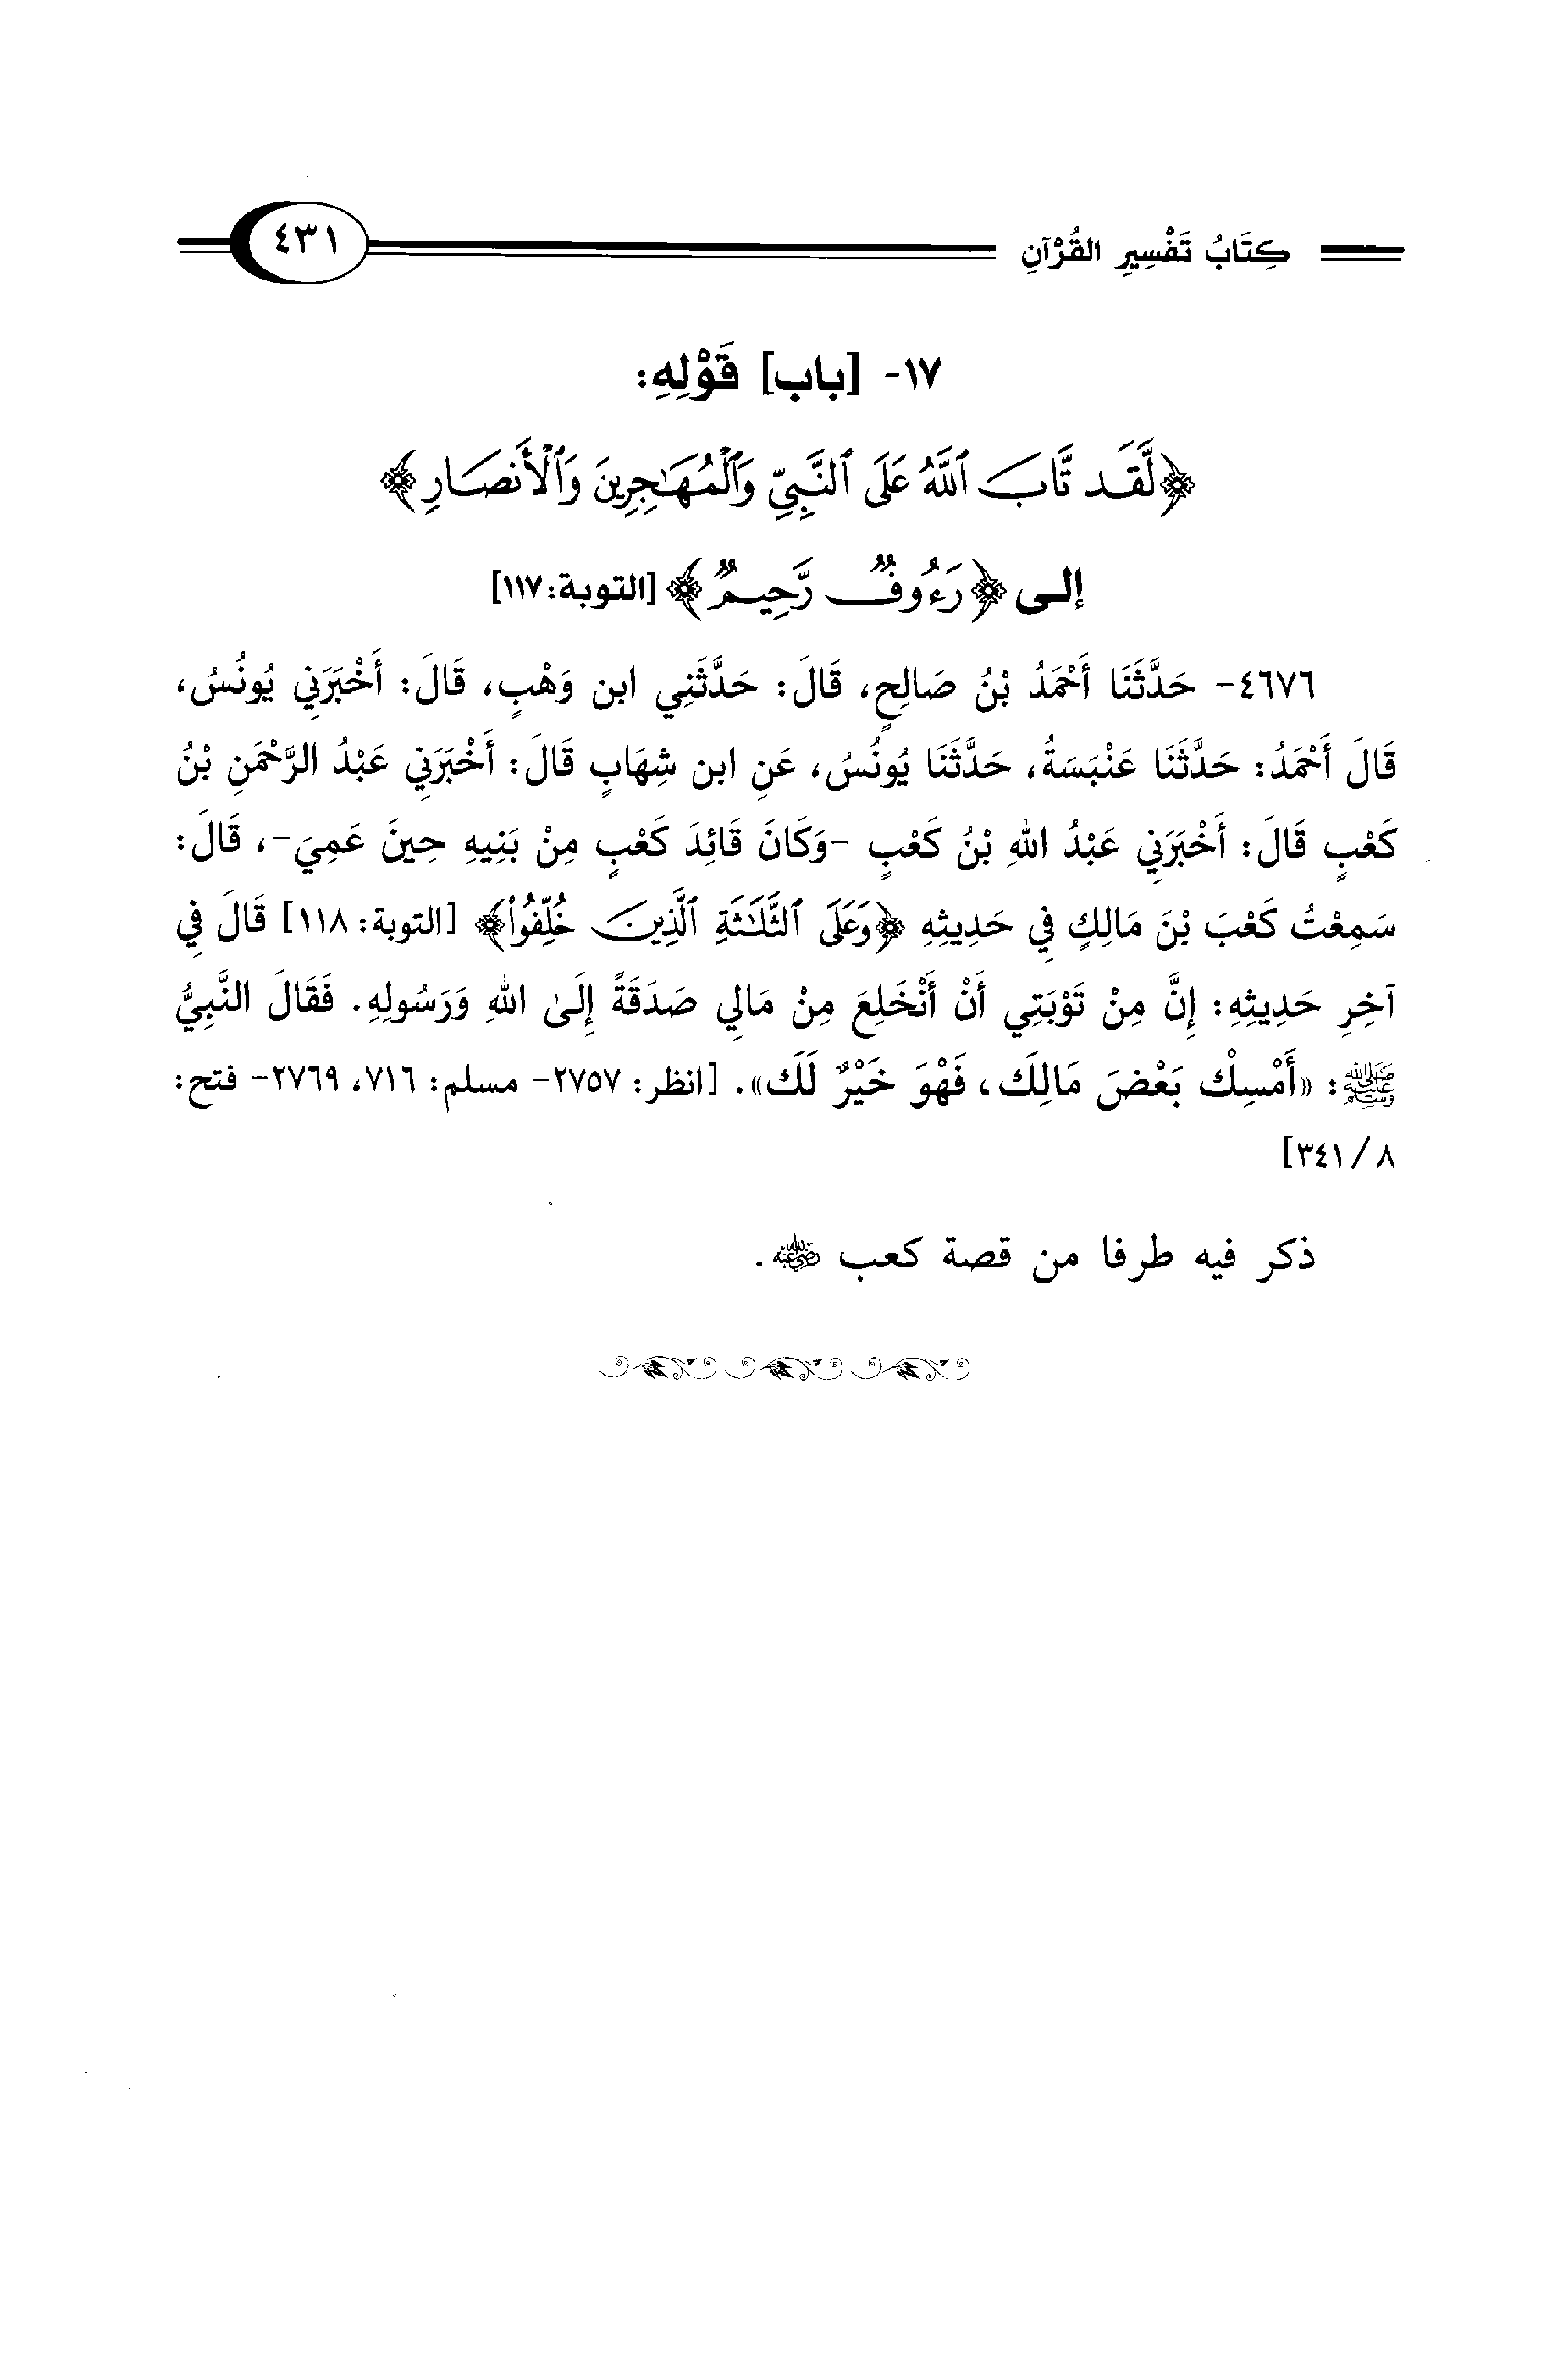 كِتَابُ تَفْسِيرِ القُرْآنِ ٤٣١
١٧- [باب] قَوْلِهِ:
﴿لَّقَد تَّابَ ٱللَّهُ عَلَى ٱلنَّبِيِّ وَٱلْمُهَٰجِرِينَ وَٱلْأَنصَارِ﴾
إلى ﴿رَءُوفٌ رَّحِيمٌ﴾ [التوبة:١١٧]
٤٦٧٦- حَدَّثَنَا أَحْمَدُ بْنُ صَالِحٍ، قَالَ: حَدَّثَنِي ابن وَهْبٍ، قَالَ: أَخْبَرَنِي يُونُسُ،
قَالَ أَحْمَدُ: حَدَّثَنَا عَنْبَسَةُ، حَدَّثَنَا يُونُسُ، عَنِ ابن شِهَابٍ قَالَ: أَخْبَرَنِي عَبْدُ الرَّحْمَنِ بْنُ
كَعْبٍ قَالَ: أَخْبَرَنِي عَبْدُ اللهِ بْنُ كَعْبٍ -وَكَانَ قَائِدَ كَعْبٍ مِنْ بَنِيهِ حِينَ عَمِيَ-، قَالَ:
سَمِعْتُ كَعْبَ بْنَ مَالِكٍ فِي حَدِيثِهِ ﴿وَعَلَى ٱلثَّلَٰثَةِ ٱلَّذِينَ خُلِّفُواْ﴾ [التوبة: ١١٨] قَالَ فِي
آخِرِ حَدِيثِهِ: إِنَّ مِنْ تَوْبَتِي أَنْ أَنْخَلِعَ مِنْ مَالِي صَدَقَةً إِلَىٰ اللهِ وَرَسُولِهِ. فَقَالَ النَّبِيُّ
ﷺ: «أَمْسِكْ بَعْضَ مَالِكَ، فَهْوَ خَيْرٌ لَكَ». [انظر: ٢٧٥٧- مسلم: ٧١٦، ٢٧٦٩- فتح:
٨/ ٣٤١]
ذكر فيه طرفا من قصة كعب رضي الله عنه.